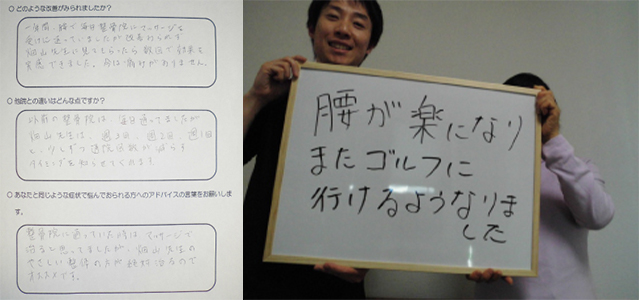 ○ どのような改善がみられましたか？
一年間、毎日整骨院にマッサージを
受けに通っていましたが改善がみられず
先生に見てもらったら数回で効果を
実感できました。今は痛みがありません。
○ 他院との違いはどんな点ですか？
以前の整骨院は、毎日通ってましたが
先生は、週3回、週2回、週1回
と、少しずつ通院回数が減らす
タイミングを知らせてくれます
○ あなたと同じような症状で悩んでおられる方へのアドバイスの言葉をお願いしま
す。
整骨院に通っていた時は、マッサージで
治ると思ってましたが、先生の
やさしい整体の方が絶対治るので
オススメです。
腰が楽になり
またゴルフに
行けるようなりま
した